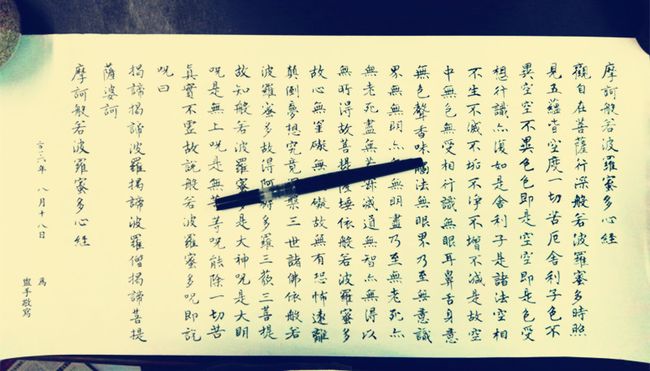 摩訶般若波羅蜜多心經
觀自在菩薩行深般若波羅蜜多時照
見五蘊皆空度一切苦厄舍利子色不
異空空不異色色即是空空即是色受
想行識亦復如是舍利子是諸法空相
不生不滅不垢不淨不增不減是故空
中無色無受相行識無眼耳鼻舌身意
無色聲香味法無眼界乃至無意識
界無無明亦無無明盡乃至無老死亦
無老死盡無滅道無智亦無得以
無所得故菩提埵依般若波羅蜜多
故心無罣礙無礙故無有恐怖遠離
顛倒夢想究竟槃三世諸佛依般若
波羅蜜多故得阿多羅三藐三菩提
故知般若波羅蜜是大神呪是大明
呪是無上呪是無等呪能除一切苦
真實不虛故說般若波羅蜜多呪即説
呪曰
揭諦揭諦波羅揭諦波羅僧揭諦菩提
薩婆訶
摩訶般若波羅蜜多心經
六年 八月十八日
為
盥手敬寫